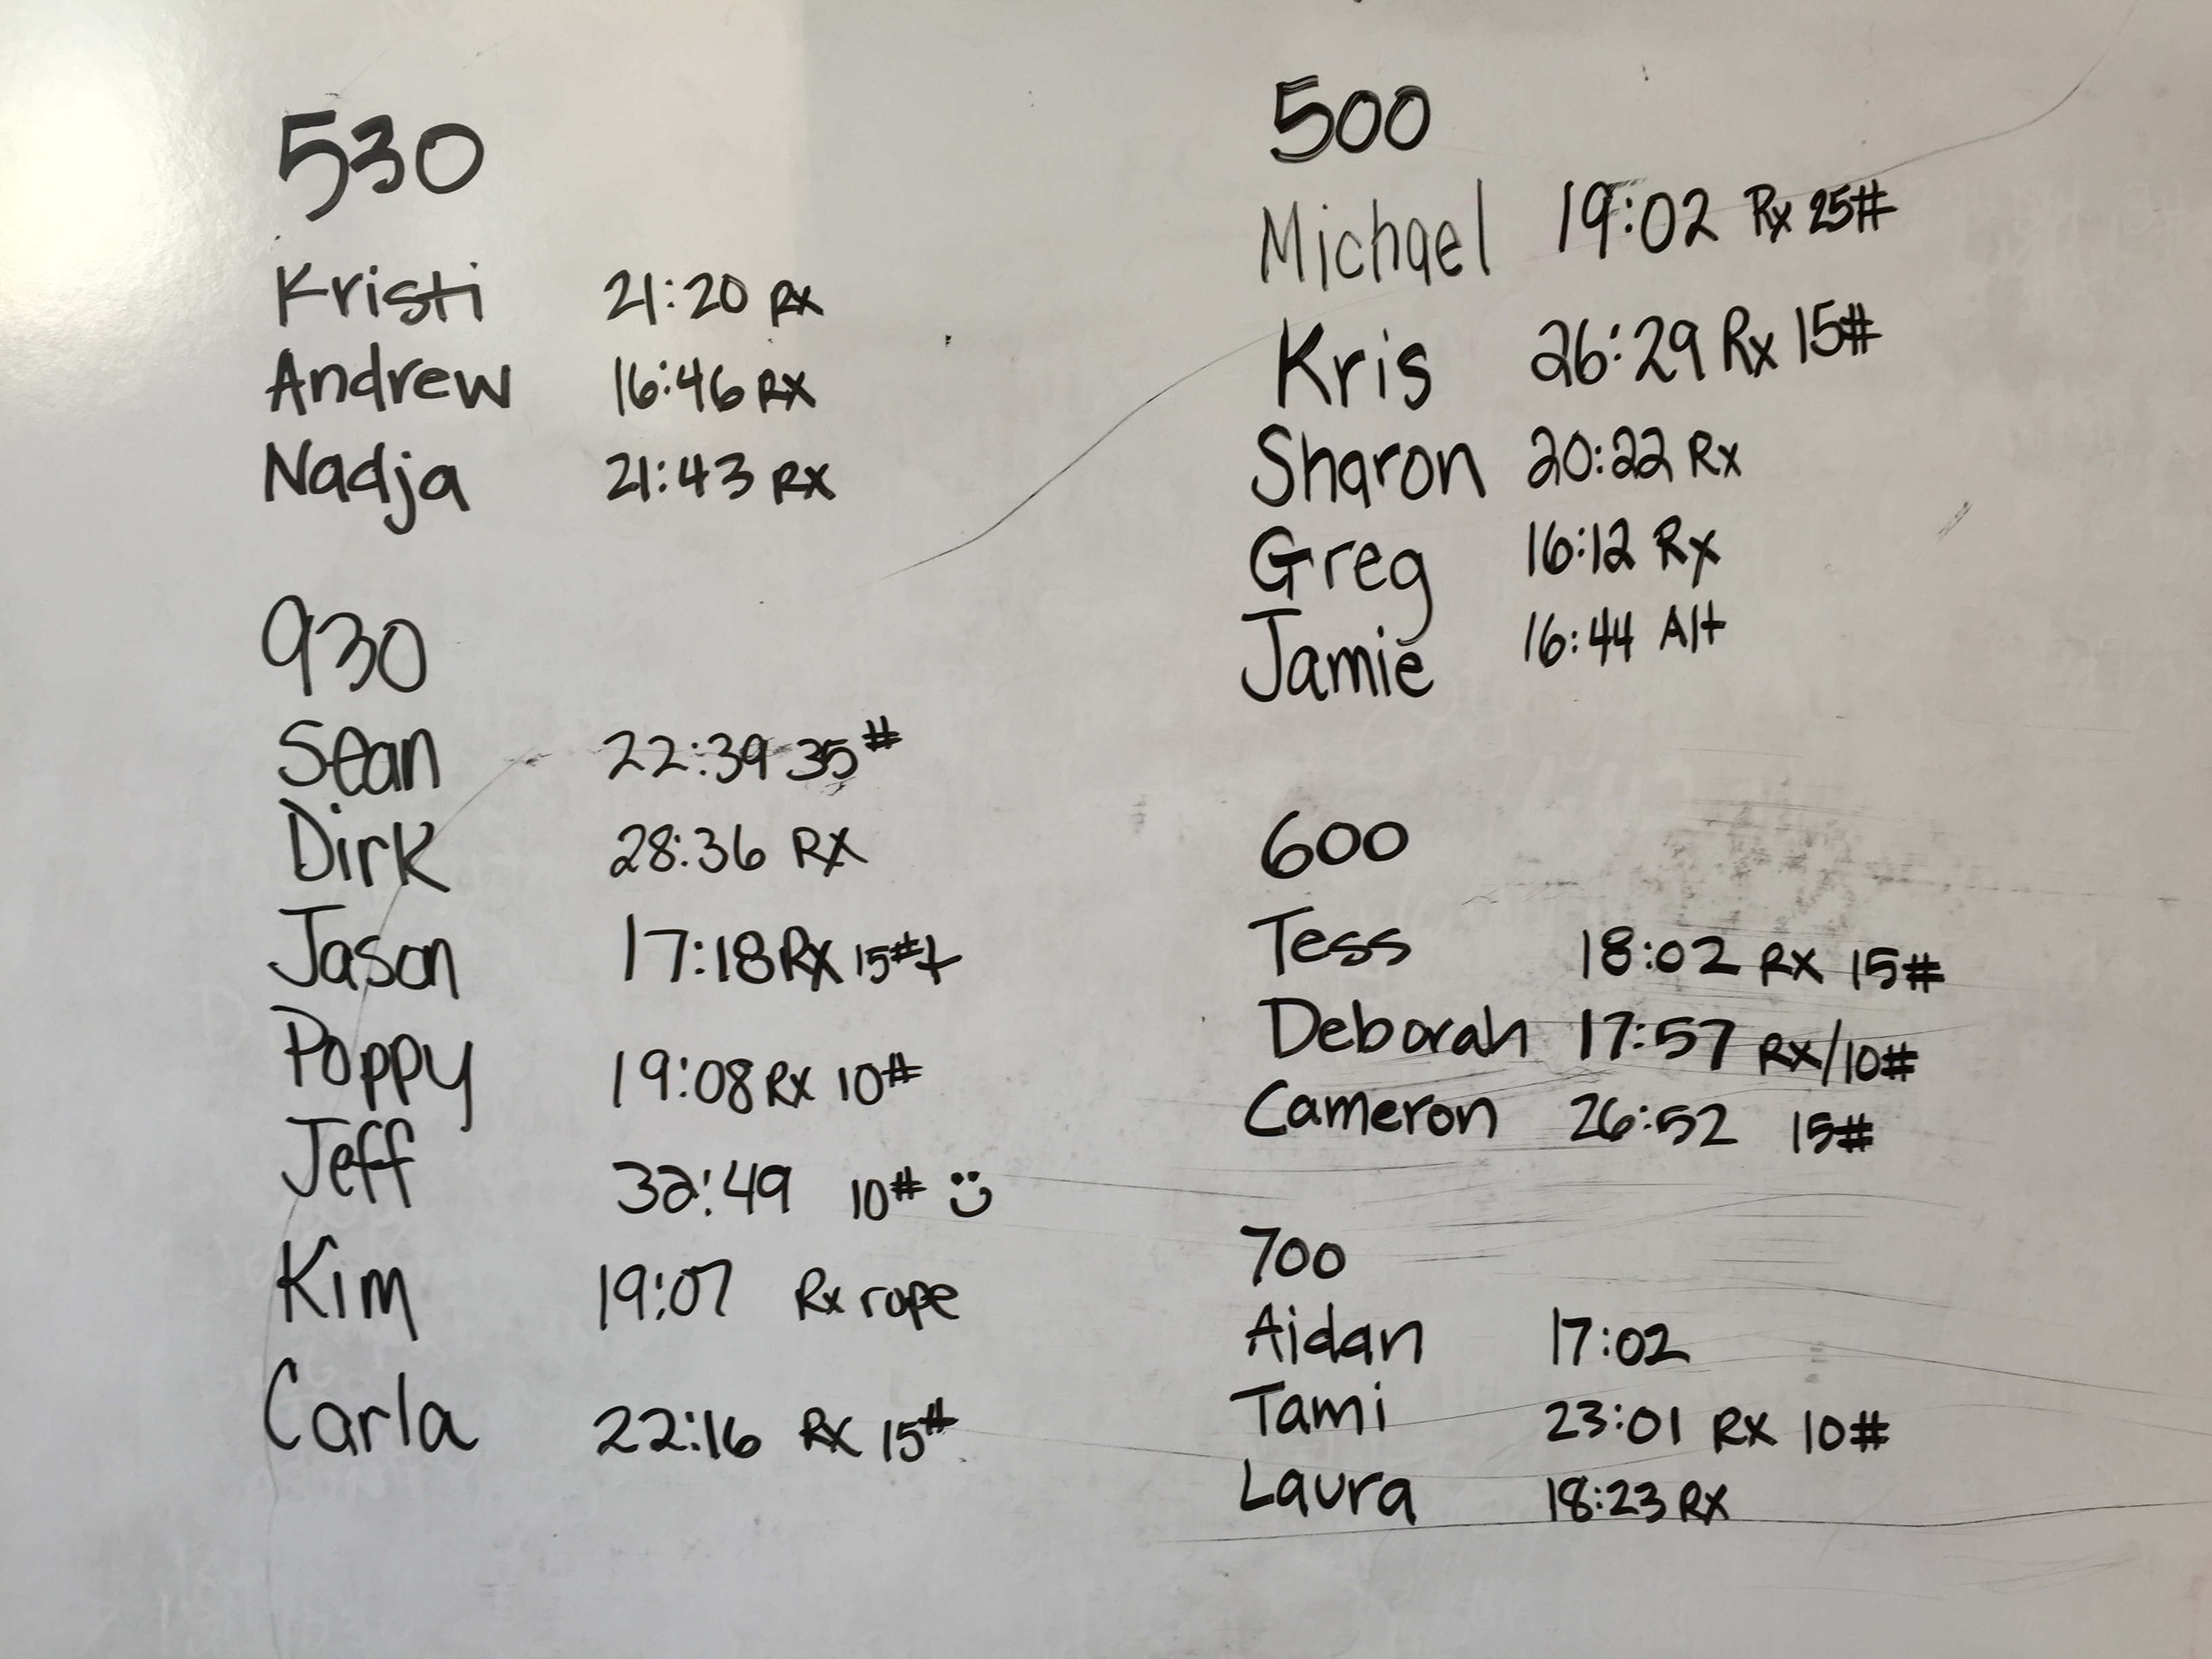 530
Kristi 21:20 Rx
Andrew 16:46 RX
Nadja 21:43 RX
930
Sean 22:39 35#
Dirk 28:36 RX
Jason 17:18 RX 15#+
Poppy 19:08 Rx 10#
Jeff 32:49 10# :)
Kim 19:07 Rx rope
Carla 22:16 RX 15#
500
Michael 19:02 Rx 25#
Kris 26:29 Rx 15#
Sharon 20:22 Rx
Greg 16:12 Rx
Jamie 16:44 Alt
600
Tess 18:02 RX 15#
Deborah 17:57 RX/10#
Cameron 26:52 15#
700
Aidan 17:02
Tami 23:01 RX 10#
Laura 18:23 RX